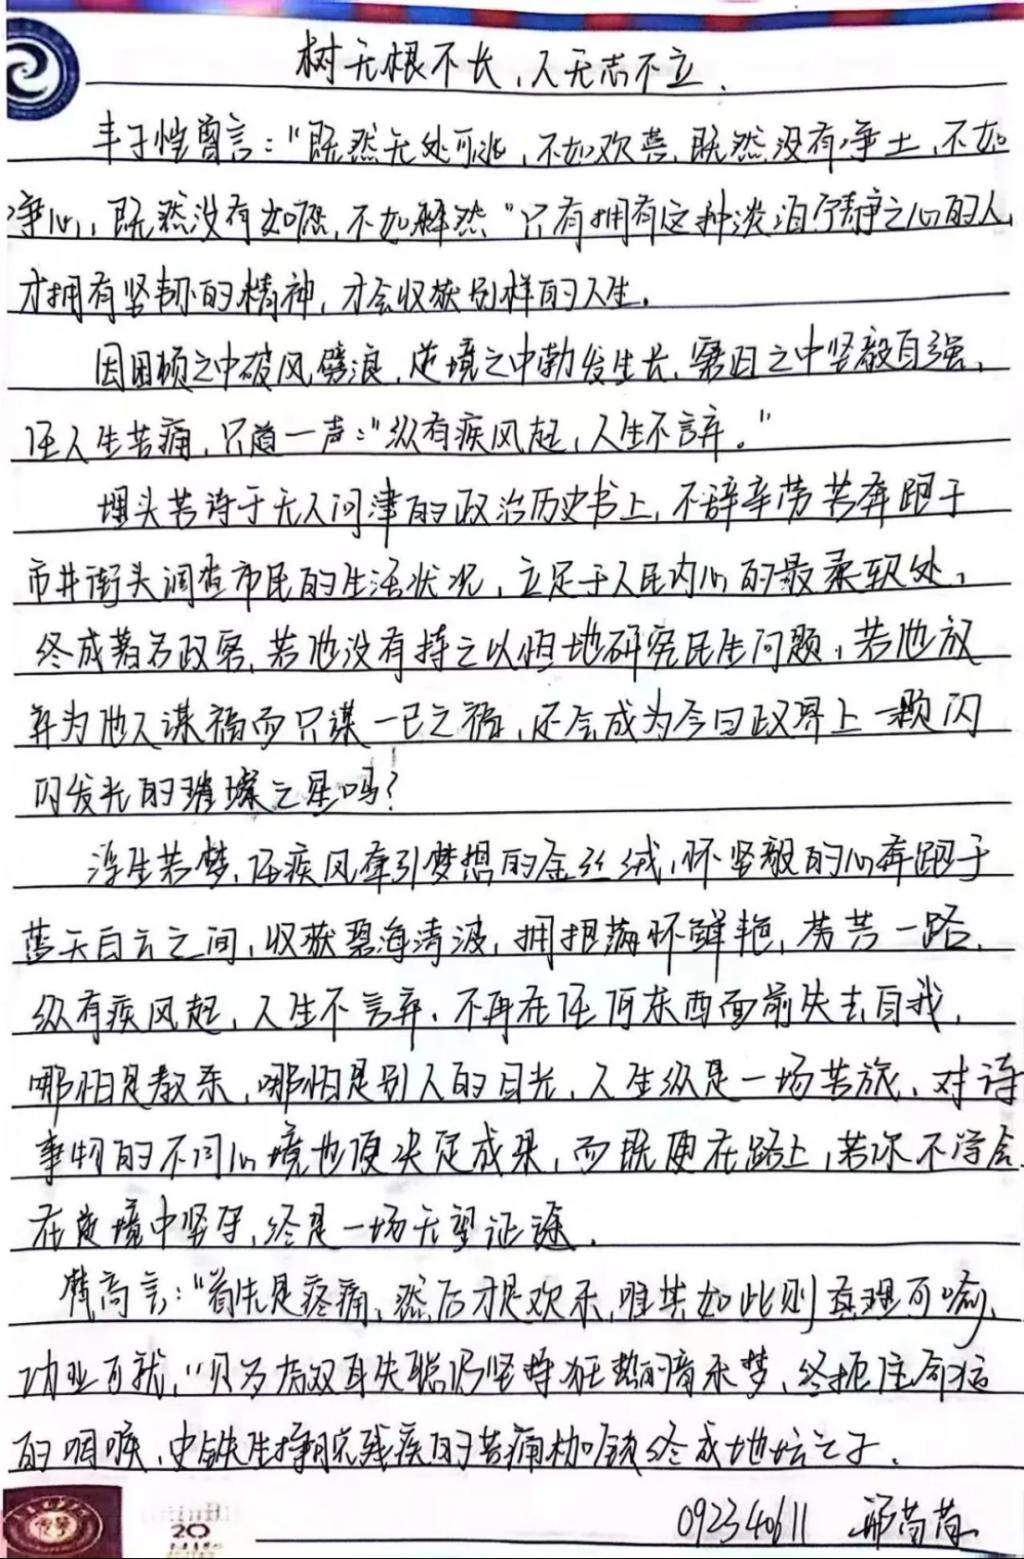 树无根不长，人无志不立.
丰子恺曾言："既然无处可逃，不如欢喜，既然没有净土，不如
净心，既然没有如愿，不如释然"只有拥有这种淡泊宁静之心的人，
才拥有坚韧的精神，才会收获别样的人生。
因困顿之中破风劈浪，逆境之中勃发生长，窘迫之中坚毅自强，
任人生苦痛，只道一声："纵有疾风起，人生不言弃。"
埋头苦读于无人问津的政治历史书上，不辞辛劳苦奔跑于
市井街头调查市民的生活状况，立足于人民内心的最柔软处，
终成著名政客，若他没有持之以恒地研究民生问题，若他放
弃为他人谋福而只谋一己之福，还会成为今日政界上一颗闪
闪发光的璀璨之星吗？
浮生若梦，任疾风牵引梦想的金丝绒，怀坚毅的心奔跑于
蓝天白云之间，收获碧海清波，拥抱满怀鲜艳，芳芳一路，
纵有疾风起，人生不言弃，不再在任何东西面前失去自我，
哪怕是教条，哪怕是别人的目光，人生纵是一场苦旅，对待
事物的不同心境也便决定成果，而既便在路上，若你不学会
在逆境中坚守，终是一场无望征途.
梵高言："首先是疼痛，然后才是欢乐，唯其如此则真理可喻，
功业可就，"贝多芬双耳失聪仍坚持狂热的音乐梦，终扼住命运
的咽喉，史铁生挣脱完残疾的苦痛枷锁终成地坛之子.
20
092340611